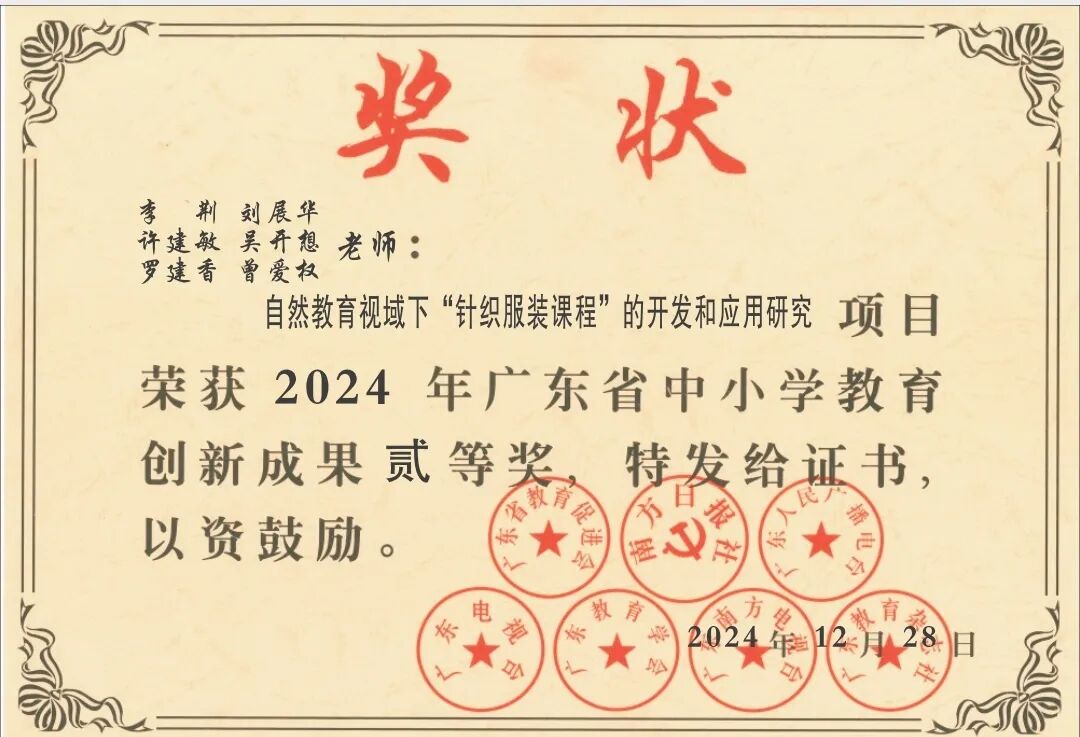 奖状
李荆 刘展华
许建敏 吴开想 老师：
罗建香 曾爱权
自然教育视域下“针织服装课程”的开发和应用研究 项目
荣获 2024 年广东省中小学教育
创新成果贰等奖，特发给证书，
以资鼓励。
广东省教育促进会
南方日报社
广东人民广播电台
广东电视台
广东教育学会
广东南方电视台
广东教育杂志社
2024 年 12 月 28 日